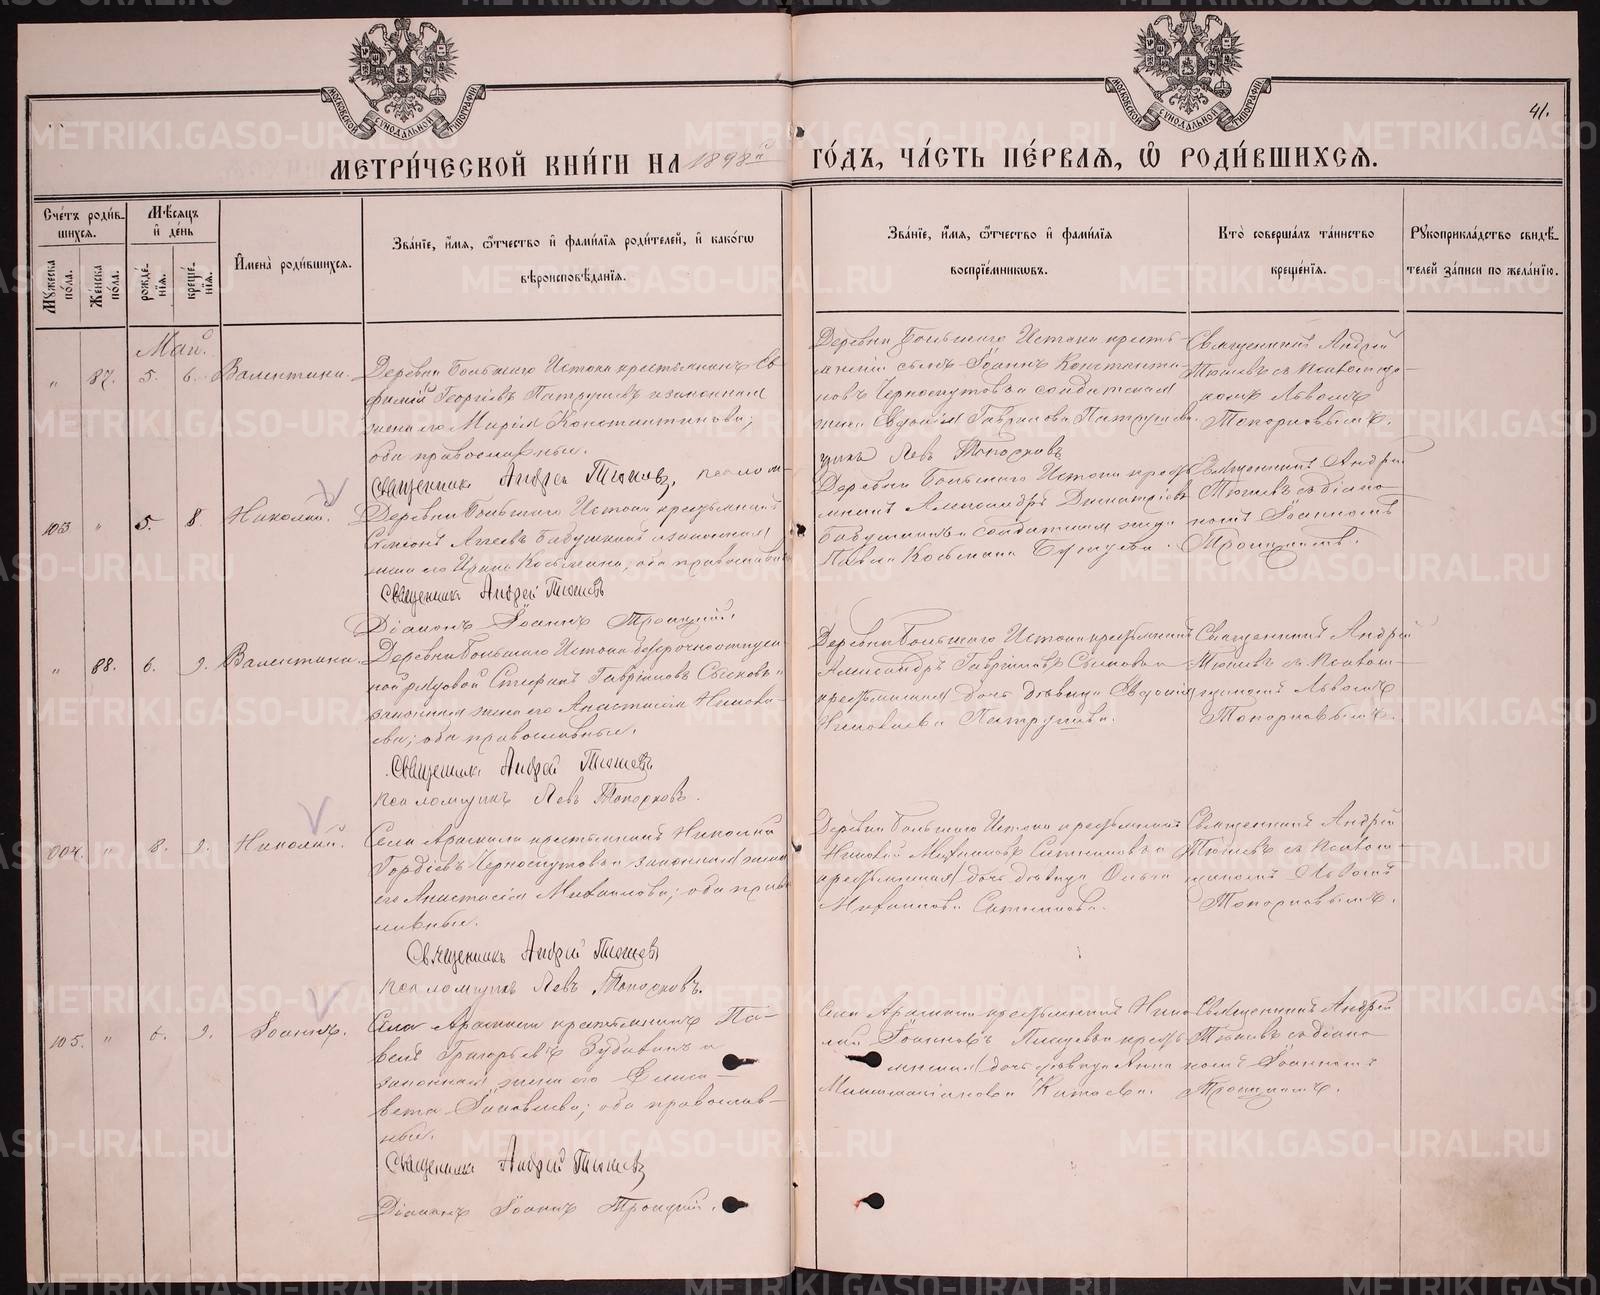 МЕТРИ́ЧЕСКОЙ КНИ́ГИ НА 1898й ГО́ДЪ, ЧА́СТЬ ПЕ́РВАѦ, Ѽ РОДИ́ВШИХСѦ.
41.
МОСКОВСКОЙ СѴНОДАЛЬНОЙ ТИПОГРАФІИ
МОСКОВСКОЙ СѴНОДАЛЬНОЙ ТИПОГРАФІИ
Сче́тъ роди́в-
шихсѧ.
Мꙋ́жеска по́ла.
Же́нска по́ла.
Мѣ́сѧцъ
и҆ де́нь
рожде́-
нїѧ.
креще́-
нїѧ.
И҆мена̀ роди́вшихсѧ.
Зва́нїе, и҆́мѧ, ѻ҆́тчество и҆ фами́лїѧ роди́телей, и҆ како́гѡ
вѣроисповѣ́данїѧ.
Зва́нїе, и҆́мѧ, ѻ҆́тчество и҆ фами́лїѧ
воспрїе́мникѡвъ.
Кто̀ соверша́лъ та́инство
креще́нїѧ.
Рꙋкоприкла́дство свидѣ́-
телей за́писи по жела́нїю.
Май.
" 87. 5. 6. Валентина.
Деревни Большаго Истока крестьянинъ Ев-
фимій Георгіевъ Патрушевъ и законная
жена его Марія Константинова;
оба православные.
Священникъ Андрей Тюшевъ, псалом-
щикъ Левъ Топорковъ
Деревни Большаго Истока кресть-
янскій сынъ Іоаннъ Константи-
новъ Черноскутовъ и солдатская
жена Евдокія Гаврилова Патрушева.
Священникъ Андрей
Тюшевъ съ псаломщи-
комъ Львомъ
Топорковымъ.
103 " 5. 8. Николай.
Деревни Большаго Истока крестьянинъ
Симеонъ Аггеевъ Бабушкинъ и законная
жена его Ирина Косьмина, оба православные
Священникъ Андрей Тюшевъ
Діаконъ Іоаннъ Троицкій.
Деревни Большаго Истока кресть-
янинъ Александръ Димитріевъ
Бабушкинъ и солдатская жена
Павла Косьмина
Священникъ Андрей
Тюшевъ съ діако-
номъ Іоанномъ
Троицкимъ.
" 88. 6. 9. Валентина.
Деревни Большаго Истока безсрочноотпуск-
ной рядовой Стефанъ Гавріиловъ и
законная жена его Анастасія Никола-
ева; оба православные.
Священникъ Андрей Тюшевъ
псаломщикъ Левъ Топорковъ.
Деревни Большаго Истока крестьянинъ
Александръ Гавріиловъ и
крестьянская дочь дѣвица Евдокія
Николаева Патрушева.
Священникъ Андрей
Тюшевъ съ псалом-
щикомъ Львомъ
Топорковымъ.
104. " 8. 9. Николай.
Села Арамили крестьянинъ Николай
Гордіевъ Черноскутовъ и законная жена
его Анастасія Михаилова; оба право-
славные.
Священникъ Андрей Тюшевъ
псаломщикъ Левъ Топорковъ.
Деревни Большаго Истока крестьянинъ
Николай Михаиловъ и
крестьянская дочь дѣвица Ольга
Михаилова
Священникъ Андрей
Тюшевъ съ псалом-
щикомъ Львомъ
Топорковымъ.
105. " 6. 9. Іоаннъ.
Села Арамили крестьянинъ Па-
велъ Григорьевъ Зубакинъ и
законная жена его Елиса-
вета Іаковлева; оба православ-
ные.
Священникъ Андрей Тюшевъ
Діаконъ Іоаннъ Троицкій.
Села Арамили крестьянинъ Нико-
лай Іоанновъ и кресть-
янская дочь дѣвица Анна
Священникъ Андрей
Тюшевъ съ діако-
номъ Іоанномъ
Троицкимъ.
METRIKI.GASO-URAL.RU